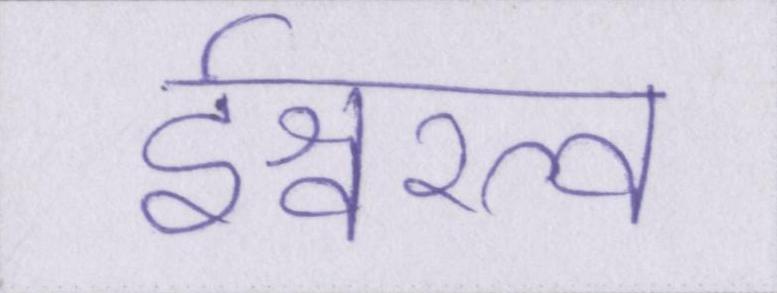 ईश्वरत्व